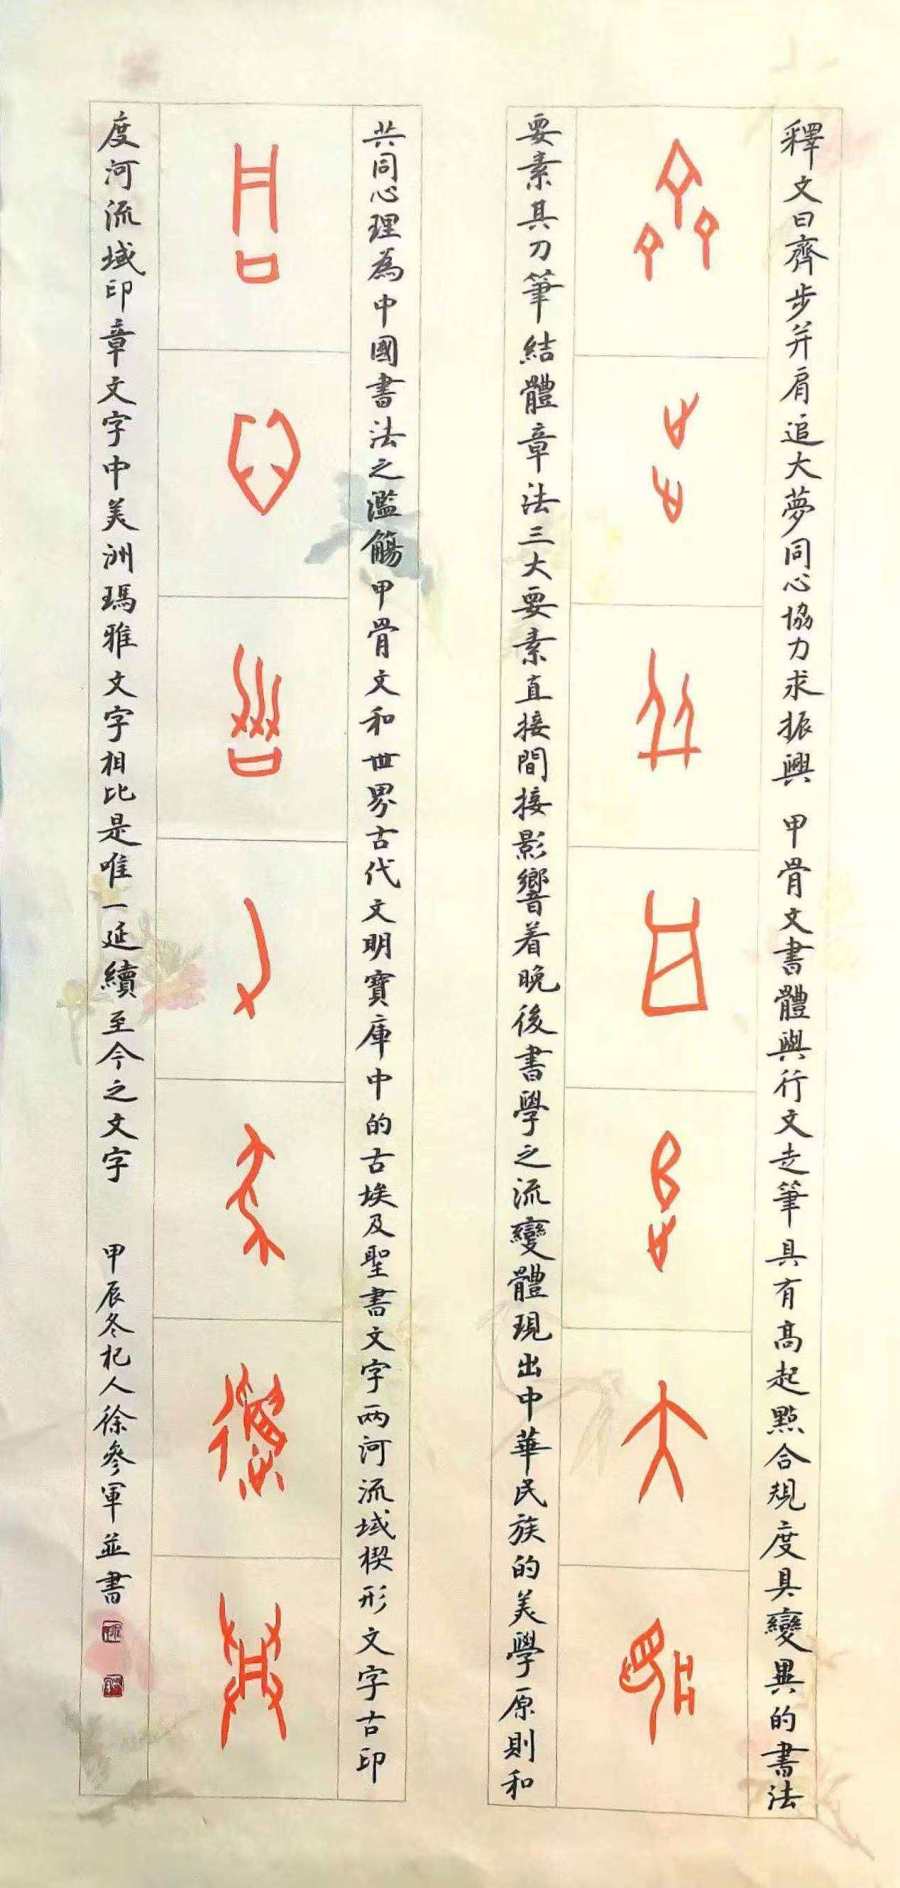 釋文曰齊步并肩追大夢同心協力求振興 甲骨文書體與行文走筆具有高起點合規度具變異的書法
齊步并肩追大夢
要素其刀筆結體章法三大要素直接間接影響着晚後書學之流變體現出中華民族的美學原則和
共同心理為中國書法之濫觴甲骨文和世界古代文明寶庫中的古埃及聖書文字两河流域楔形文字古印
同心協力求振興
度河流域印章文字中美洲瑪雅文字相比是唯一延續至今之文字 甲辰冬杞人徐參軍並書